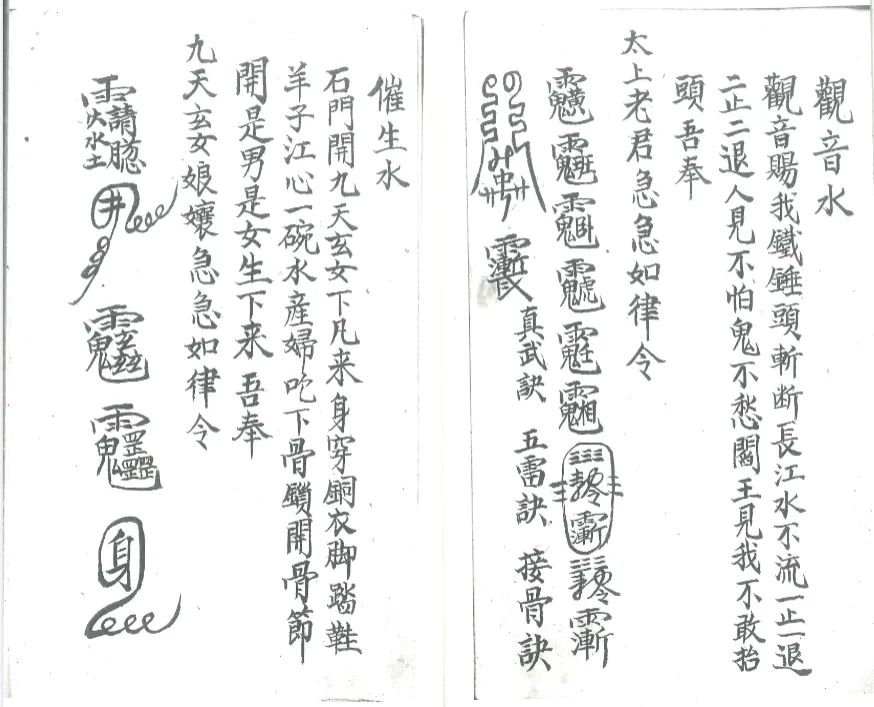 觀音水
觀音賜我鐵錘頭斬断長江水不流一止一退
二止二退人見不怕鬼不愁閻王見我不敢抬
頭吾奉
太上老君急急如律令
真武訣 五雷訣 接骨訣
催生水
石門開九天玄女下凡来身穿銅衣脚踏鞋
羊子江心一碗水産婦吃下骨鎖開骨節
開是男是女生下来吾奉
九天玄女娘孃急急如律令
身